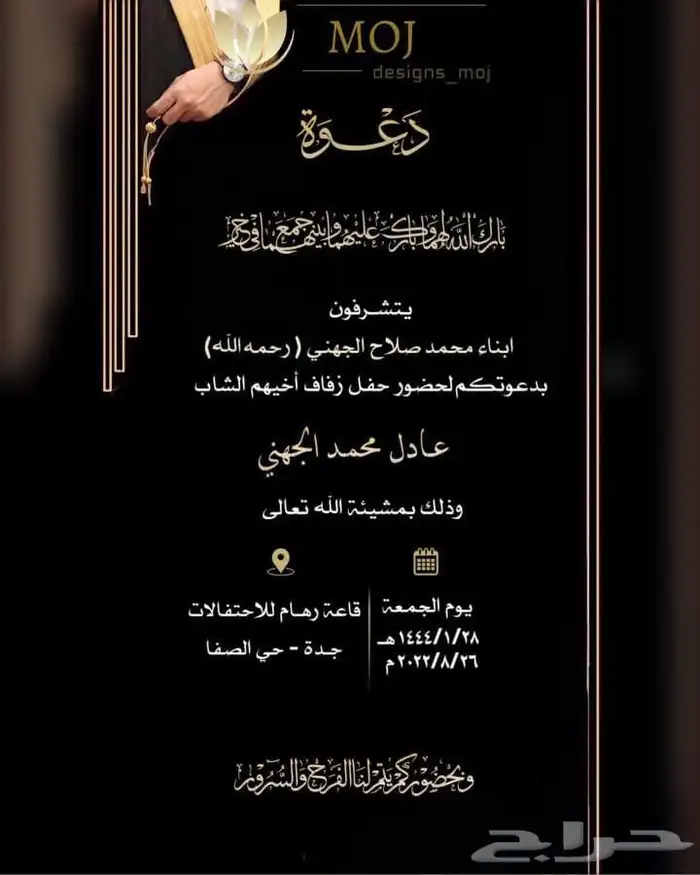 MOJ
designs_moj
دَعْوَة
بارك الله لهما وبارك عليهما وجمع بينهما في خير
يتشرفون
ابناء محمد صلاح الجهني (رحمه الله)
بدعوتكم لحضور حفل زفاف أخيهم الشاب
عادل محمد الجهني
وذلك بمشيئة الله تعالى
يوم الجمعة
١٤٤٤/١/٢٨هـ
٢٠٢٢/٨/٢٦م
قاعة رهام للاحتفالات
جدة - حي الصفا
وبحضوركم يتم لنا الفرح والسرور
حراج